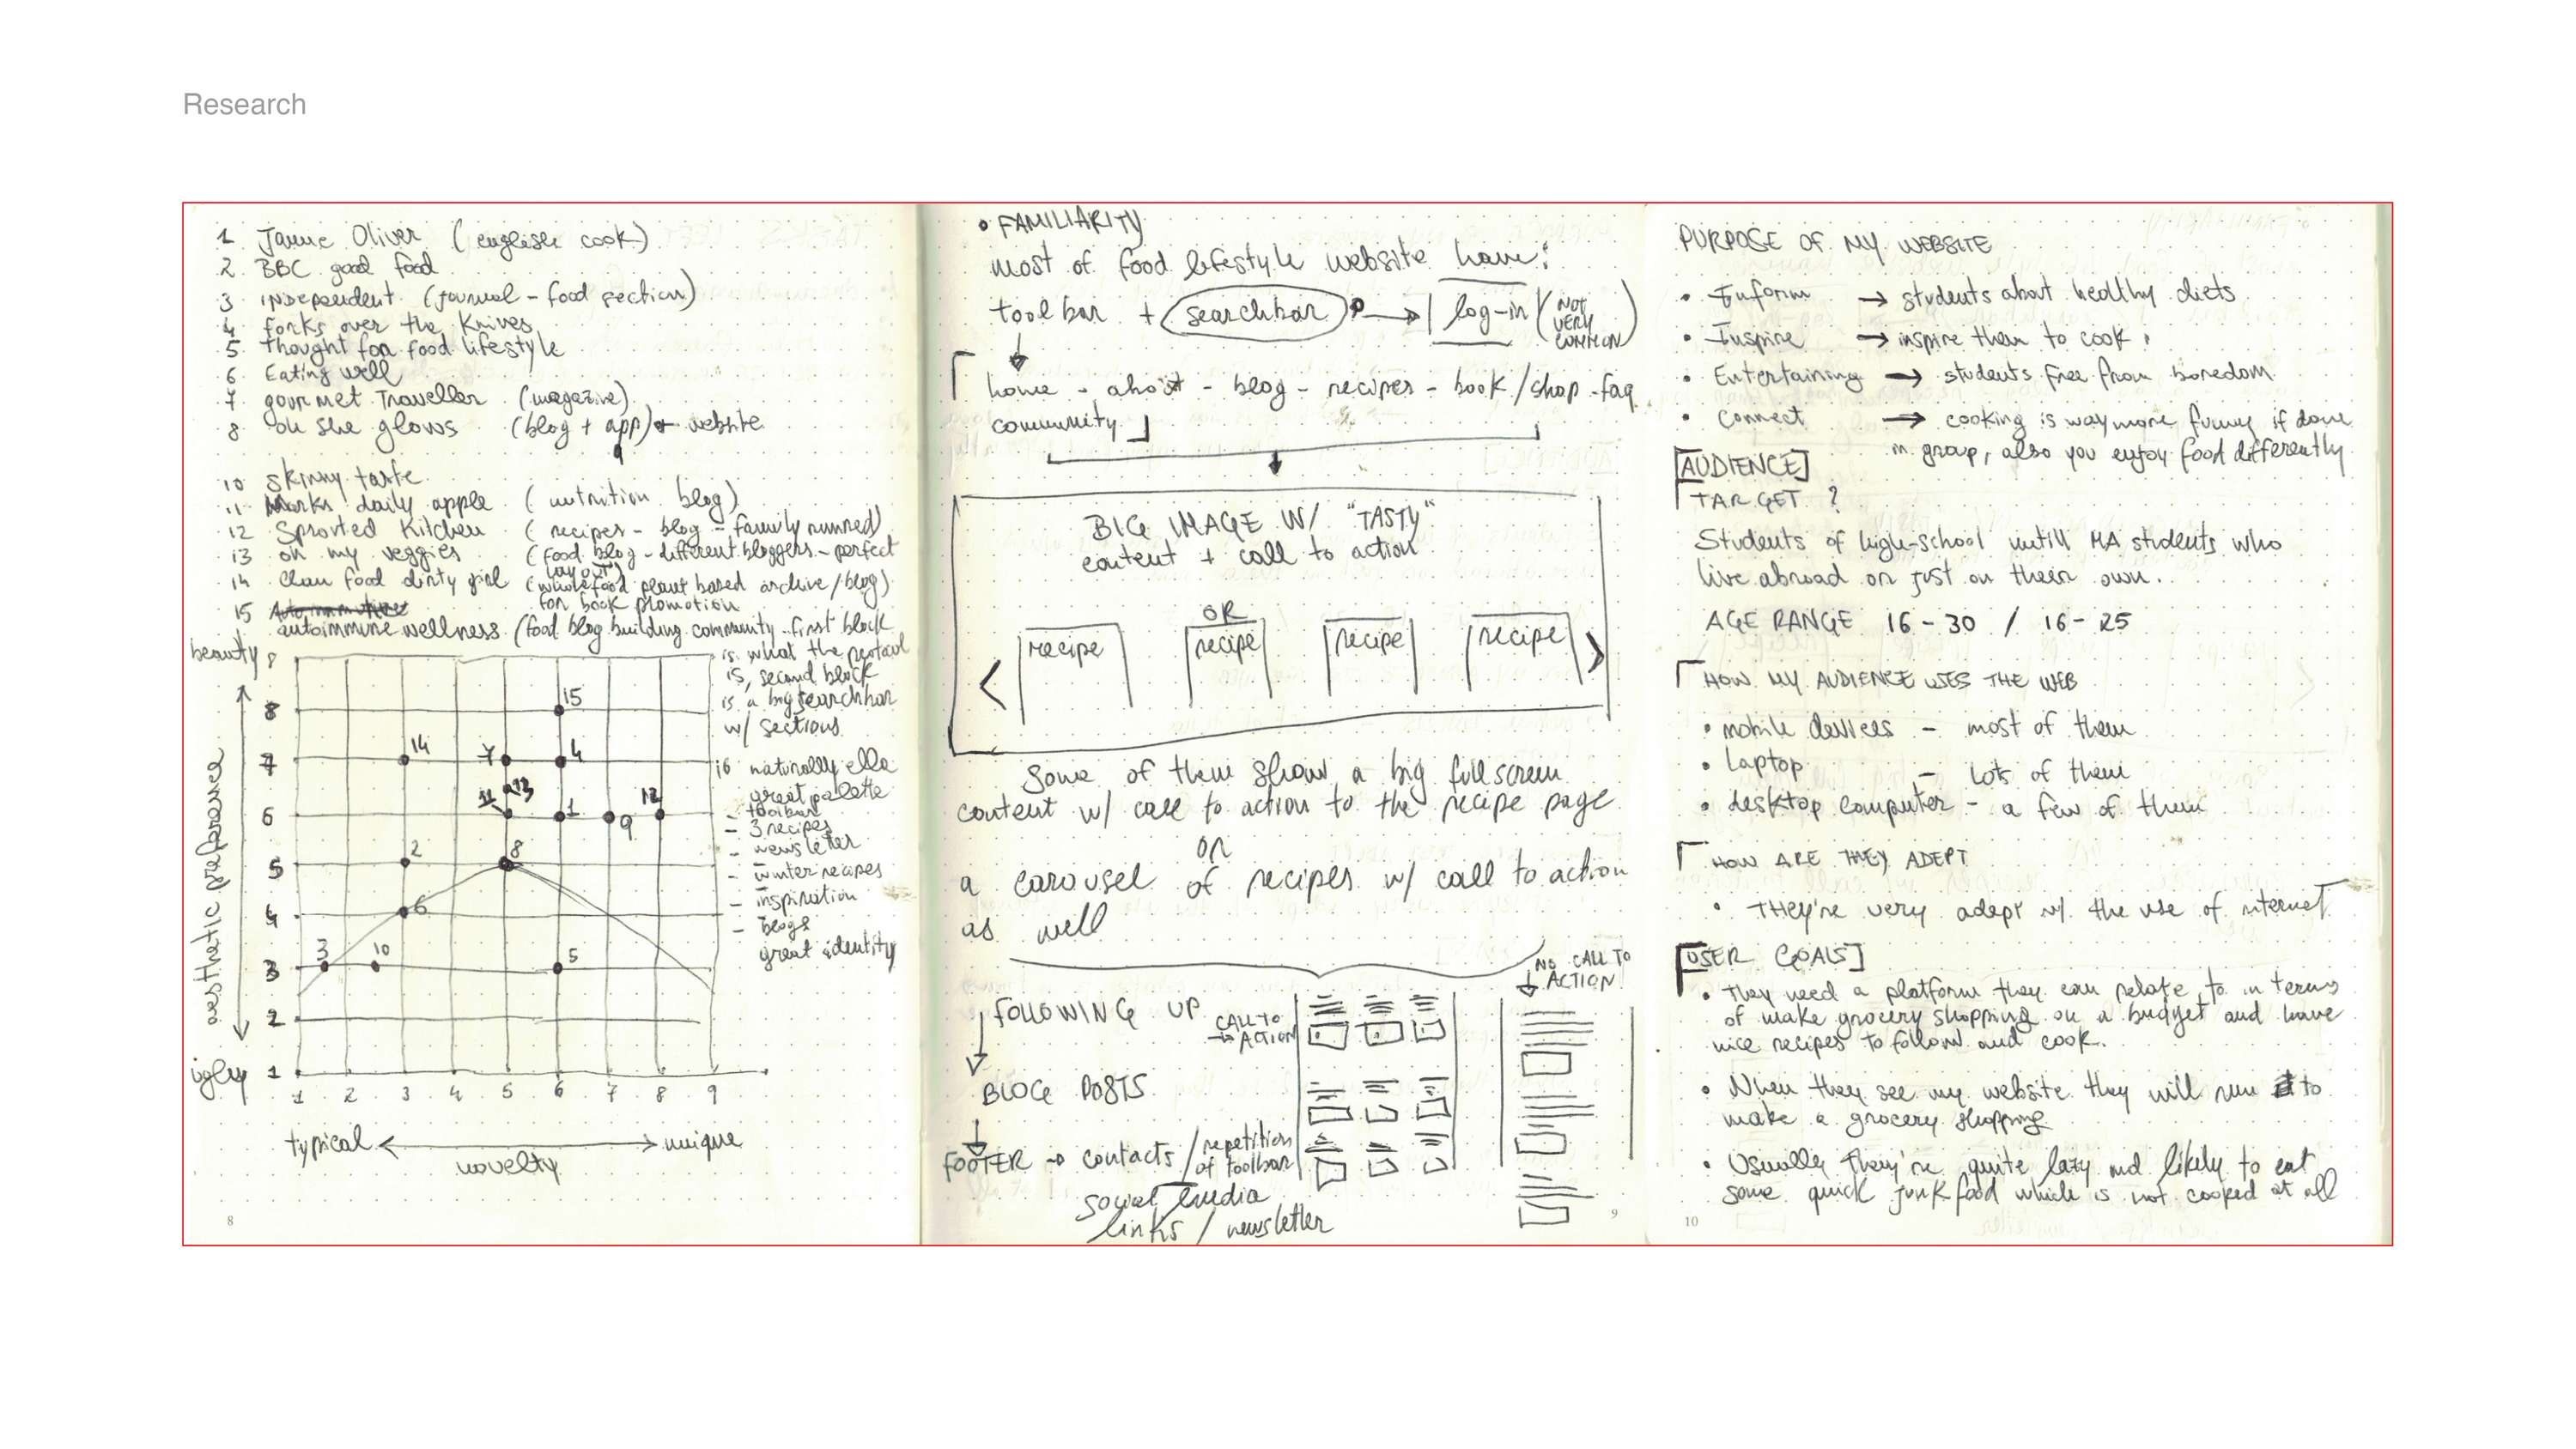 Research
1 Jamie Oliver (english cook)
2. BBC good food
3 INDEPENDENT (journal - food section)
4 forks over the knives
5. thought for food lifestyle
6 Eating well
7 gourmet Traveller (magazine)
8 oh she glows (blog + app) + website
10 skinny taste
11 Marks daily apple (nutrition blog)
12 Sprouted Kitchen (recipes - blog - family runned)
13 oh my veggies (food blog - different bloggers - perfect layout)
14 Clean food dirty girl (whole food plant based archive/blog)
for book promotion
15
autoimmune wellness (food blog building community - first block
is what the protocol
is, second block
is a big searchbar
w/ sections
16 naturally ella
great palette
- toolbar
- 3 recipes
- newsletter
- winter recipes
- inspiration
- blogs
great identity
beauty 9
8
7
6
5
4
3
2
ugly 1
aesthetic preference
15
14 7 4
13
11 1 9 12
2 8
6
3 10 5
1 2 3 4 5 6 7 8 9
typical unique
novelty
8
• FAMILIARITY
most of food lifestyle website have:
tool bar + searchbar log-in (NOT VERY COMMON)
home - about - blog - recipes - book/shop - faq
community
BIG IMAGE W/ "TASTY"
content + call to action
OR
recipe recipe recipe recipe
some of them show a big full screen
content w/ call to action to the recipe page
or
a carousel of recipes w/ call to action
as well
NO CALL TO
ACTION
FOLLOWING UP
CALL TO
ACTION
BLOG POSTS
FOOTER → contacts / repetition
of toolbar
social media
links / newsletter
9
PURPOSE OF MY WEBSITE
• Inform → students about healthy diets
• Inspire → inspire them to cook
• Entertaining → students free from boredom
• Connect → cooking is way more funny if done
in group, also you enjoy food differently
[AUDIENCE]
TARGET ?
Students of high-school untill MA students who
live abroad or just on their own.
AGE RANGE 16 - 30 / 16 - 25
HOW MY AUDIENCE USES THE WEB
• mobile devices - most of them
• Laptop - lots of them
• desktop computer - a few of them
HOW ARE THEY ADEPT
• THEY're very adept w/ the use of internet
[USER GOALS]
• They need a platform they can relate to in terms
of make grocery shopping on a budget and have
nice recipes to follow and cook.
• When they see my website they will run to
make a grocery shopping
• Usually they're quite lazy and likely to eat
some quick junk food which is not cooked at all
10